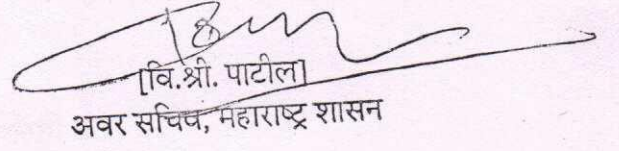 [वि.श्री. पाटील]
अवर सचिव, महाराष्ट्र शासन